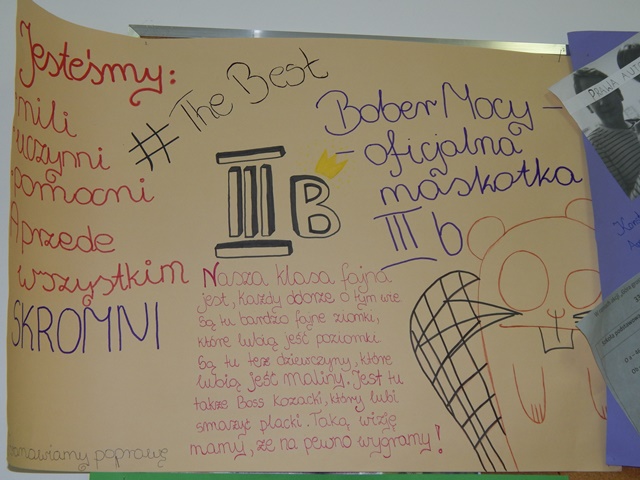 Jesteśmy:
mili
uczynni
pomocni
A przede
wszystkim
SKROMNI
#The Best
III B
Bober Mocy -
- oficjalna
maskotka
III b
Nasza klasa fajna
jest, każdy dobrze o tym wie
Są tu bardzo fajne ziomki,
które lubią jeść poziomki
Są tu też dziewczyny, które
lubią jeść maliny. Jest tu
także Boss Kozacki, który lubi
smażyć placki. Taką wizję
mamy, że na pewno wygramy!
poprawę